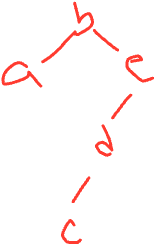 b
a e
d
c